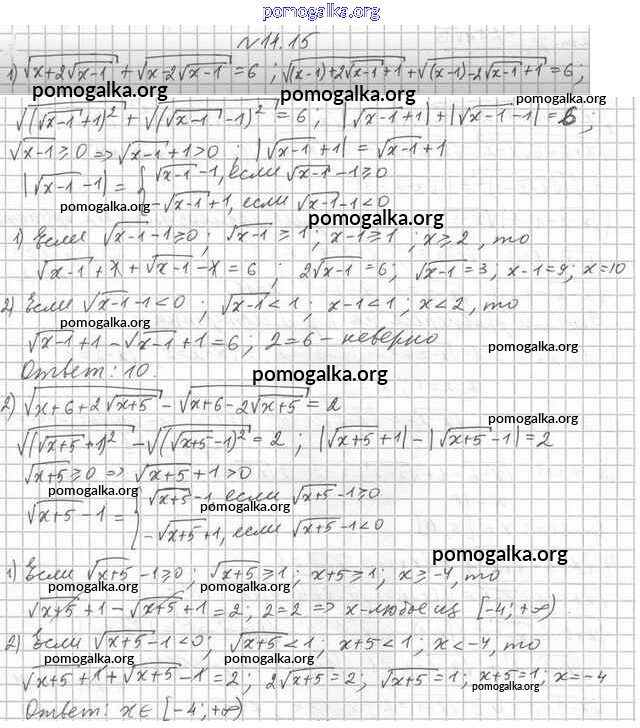 pomogalka.org
№11.15
1) √(x+2√(x-1)) + √(x-2√(x-1)) = 6 ; √((x-1)+2√(x-1)+1) + √((x-1)-2√(x-1)+1) = 6 ;
pomogalka.org pomogalka.org pomogalka.org
√((√(x-1)+1)²) + √((√(x-1)-1)²) = 6 ; |√(x-1)+1| + |√(x-1)-1| = 6 ;
√(x-1) ≥ 0 => √(x-1)+1 > 0 ; |√(x-1)+1| = √(x-1)+1
|√(x-1)-1| = { √(x-1)-1, если √(x-1)-1 ≥ 0
-√(x-1)+1, если √(x-1)-1 < 0
pomogalka.org pomogalka.org
1) Если √(x-1)-1 ≥ 0 ; √(x-1) ≥ 1 ; x-1 ≥ 1 ; x ≥ 2 , то
√(x-1) + 1 + √(x-1) - 1 = 6 ; 2√(x-1) = 6 ; √(x-1) = 3 ; x-1 = 9 ; x = 10
2) Если √(x-1)-1 < 0 ; √(x-1) < 1 ; x-1 < 1 ; x < 2 , то
pomogalka.org
√(x-1)+1 - √(x-1)+1 = 6 ; 2 = 6 - неверно
pomogalka.org
Ответ: 10.
pomogalka.org
2) √(x+6+2√(x+5)) - √(x+6-2√(x+5)) = 2
pomogalka.org
√((√(x+5)+1)²) - √((√(x+5)-1)²) = 2 ; |√(x+5)+1| - |√(x+5)-1| = 2
√(x+5) ≥ 0 => √(x+5)+1 > 0
pomogalka.org pomogalka.org
√(x+5)-1 = { √(x+5)-1, если √(x+5)-1 ≥ 0
-√(x+5)+1, если √(x+5)-1 < 0
pomogalka.org
1) Если √(x+5)-1 ≥ 0 ; √(x+5) ≥ 1 ; x+5 ≥ 1 ; x ≥ -4, то
pomogalka.org pomogalka.org
√(x+5) + 1 - √(x+5) + 1 = 2 ; 2 = 2 => x - любое из [-4; +∞)
2) Если √(x+5)-1 < 0 ; √(x+5) < 1 ; x+5 < 1 ; x < -4, то
pomogalka.org pomogalka.org
√(x+5)+1+√(x+5)-1 = 2 ; 2√(x+5) = 2 ; √(x+5) = 1 ; x+5 = 1 ; x = -4
pomogalka.org
Ответ: x ∈ [-4; +∞)